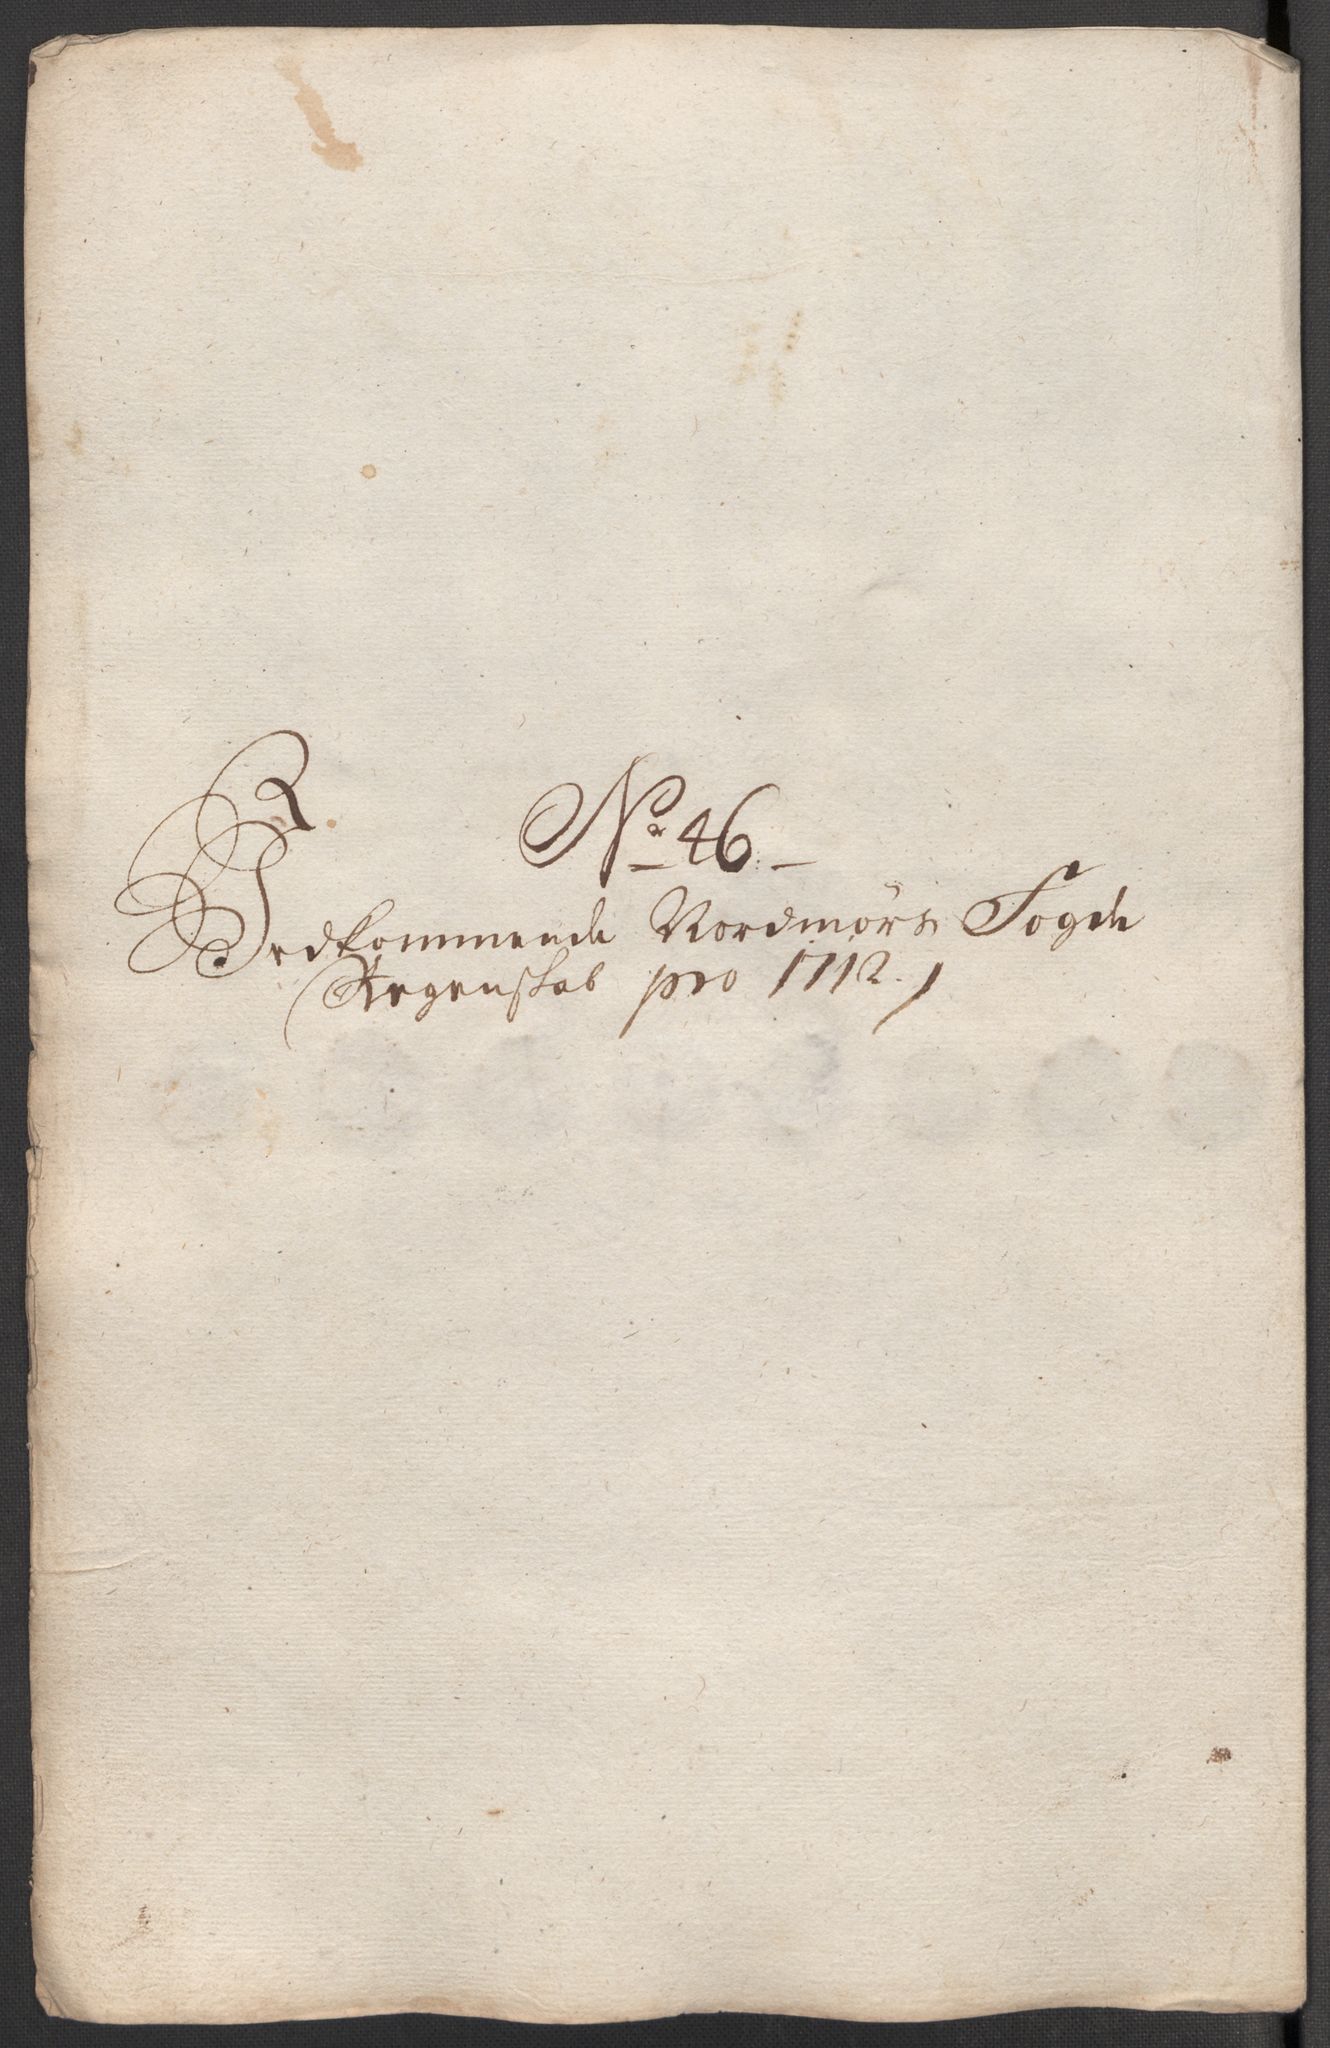 No 46.
Vedkommende Nordmørs Fogde
Regenskab pro 1712.